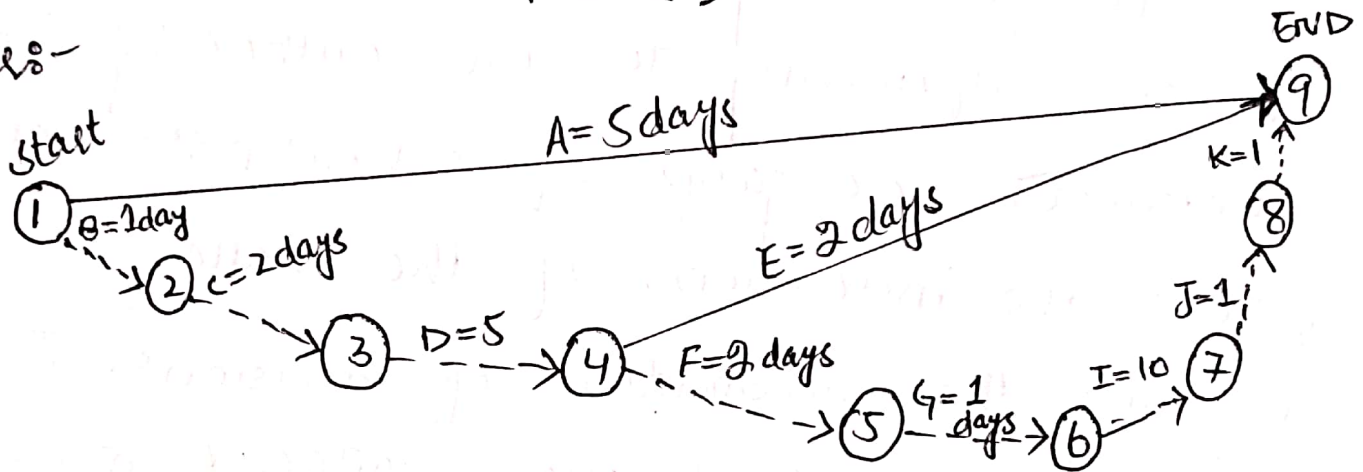 END
start
A=5days
1
9
B=1day
K=1
2
C=2days
8
E=2days
J=1
3
D=5
4
F=2 days
I=10
7
5
G=1
days
6